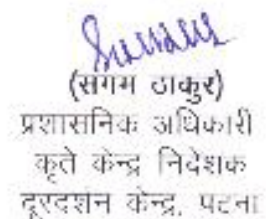 (संगम ठाकुर)
प्रशासनिक अधिकारी
कृते केन्द्र निदेशक
दूरदर्शन केन्द्र, पटना